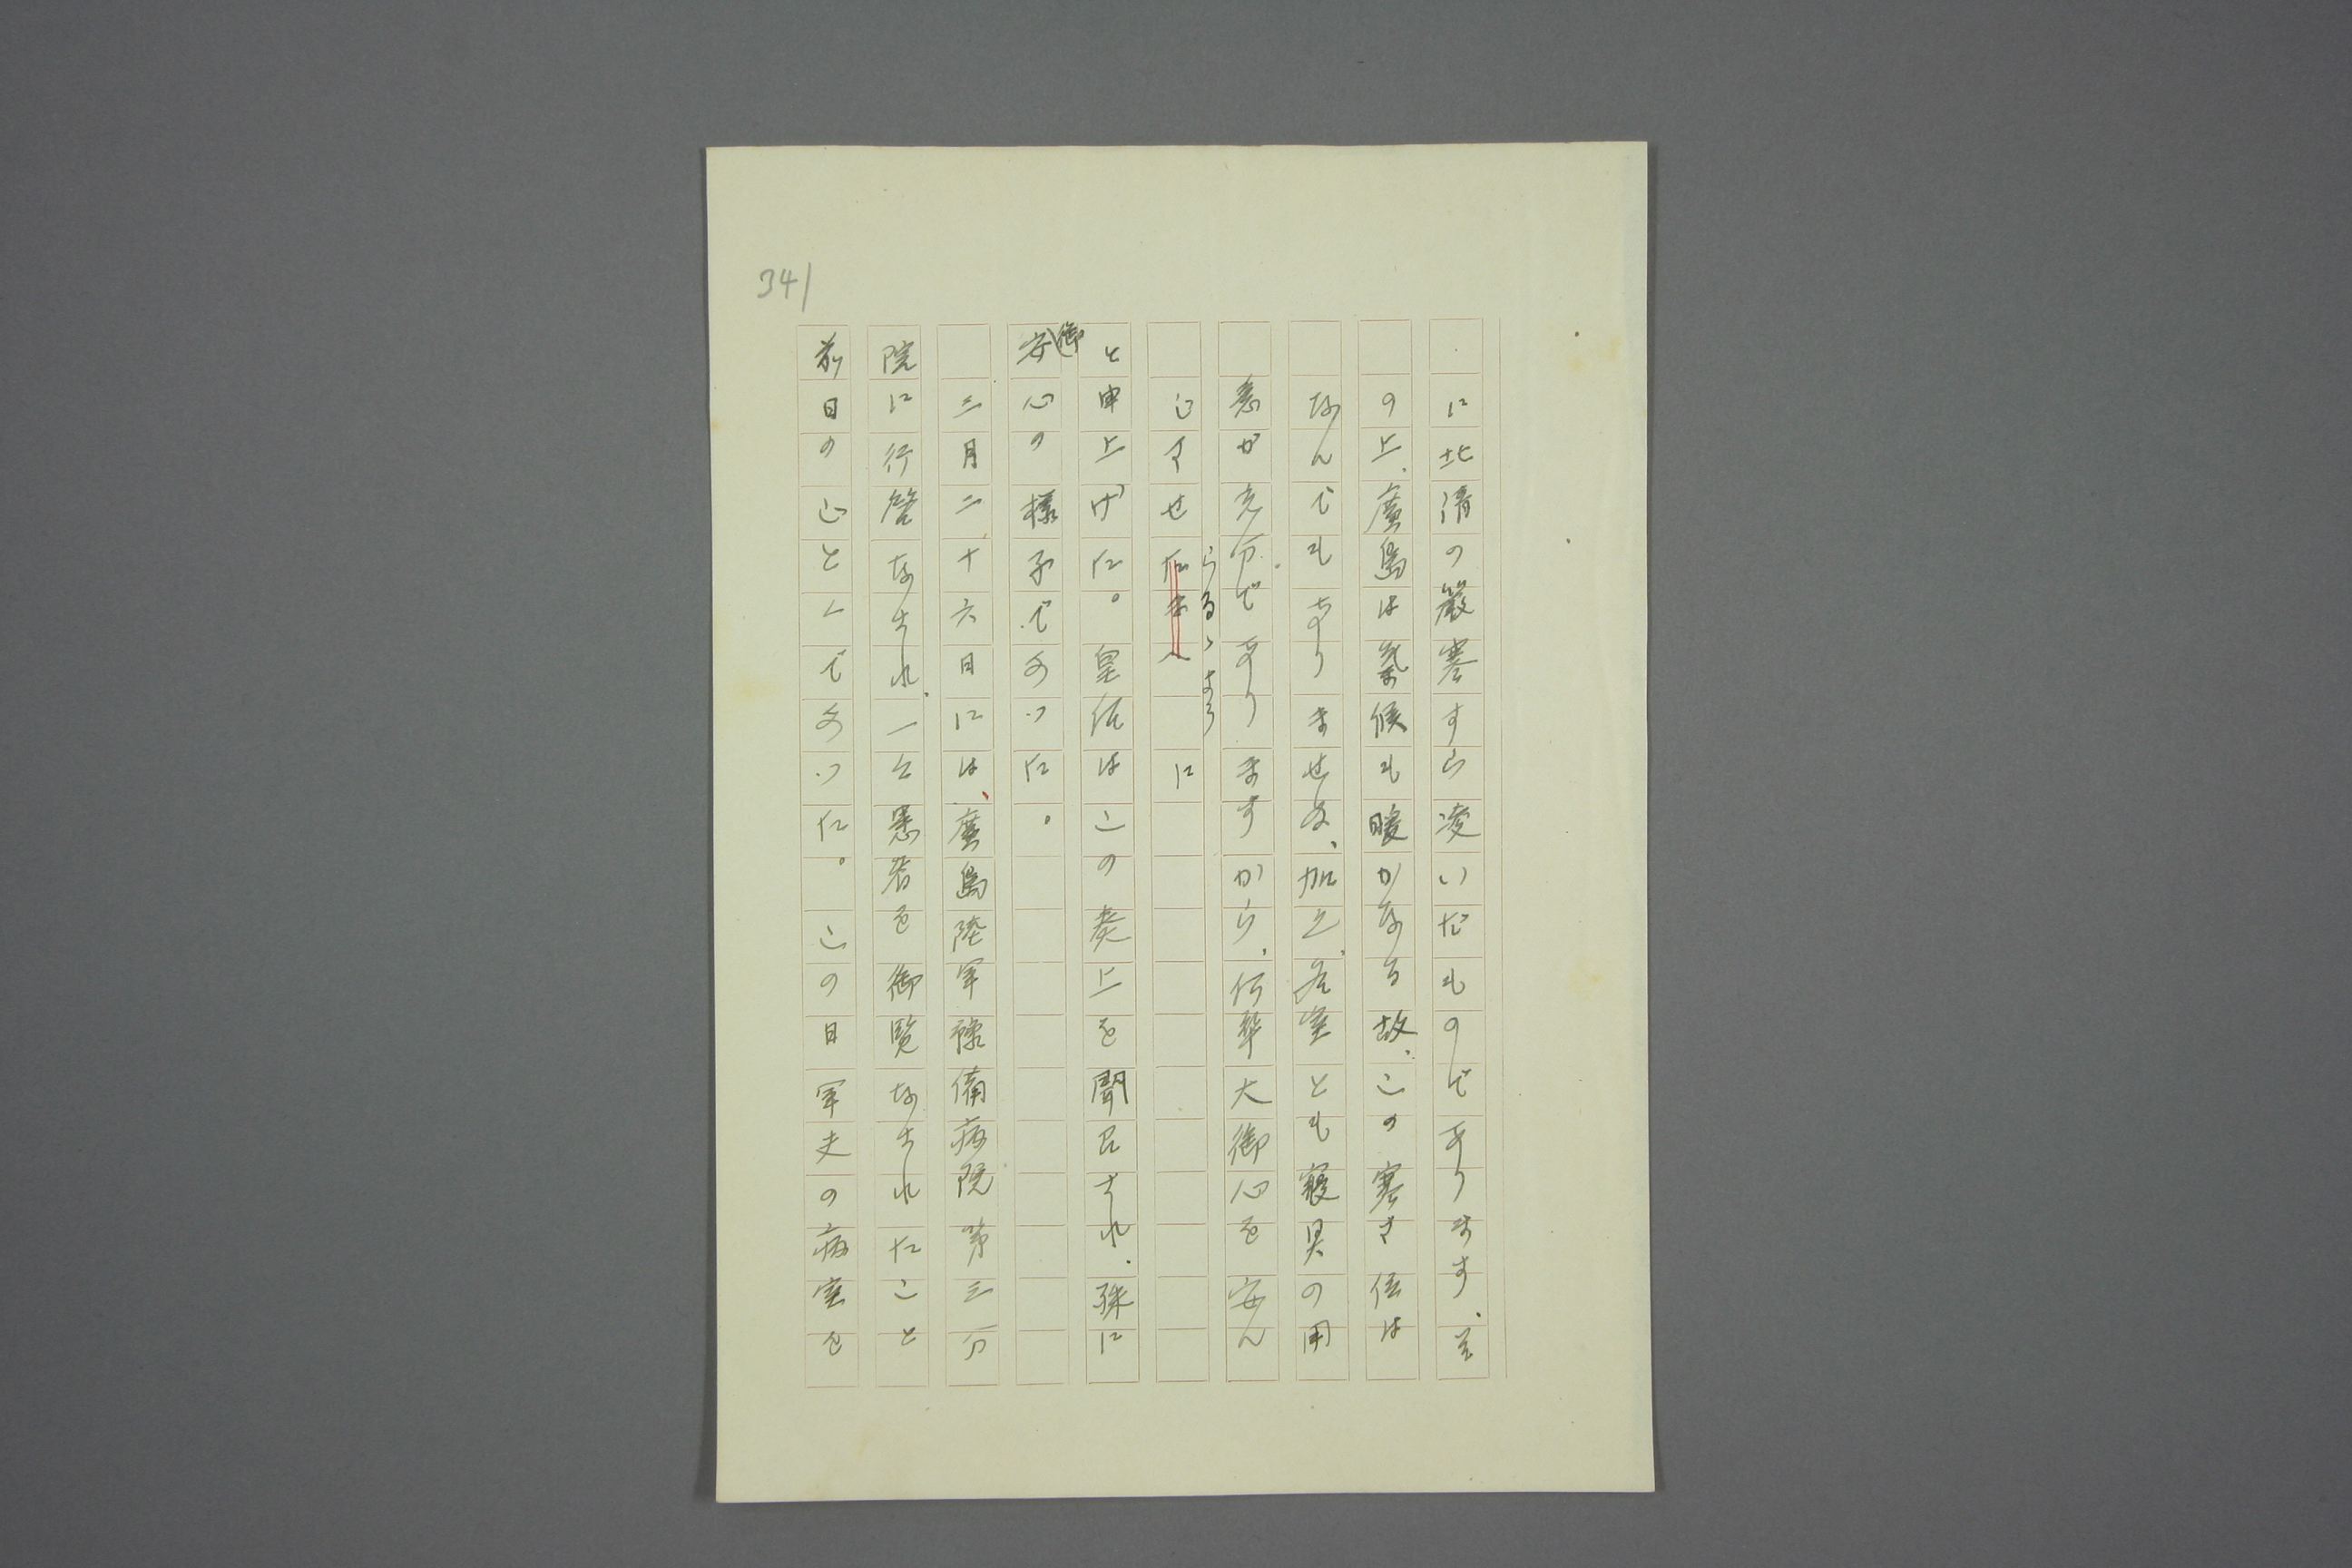 341
に北清の嚴寒すら凌いだものであります、其
の上、廣島は氣候も暖かなる故、この寒さ位は
なんでもありませぬ、加之、各室とも寢具の用
意が充分でありますから、何卒大御心を安ん
じマせらるゝように
と申上げた。皇后はこの奏上を聞召され、殊に
御安心の様子であつた。
三月二十六日には、廣島陸軍豫備病院第三分
院に行啓なされ、一々患者を御覽なされたこと
前日のごとくであつた。この日軍夫の病室を